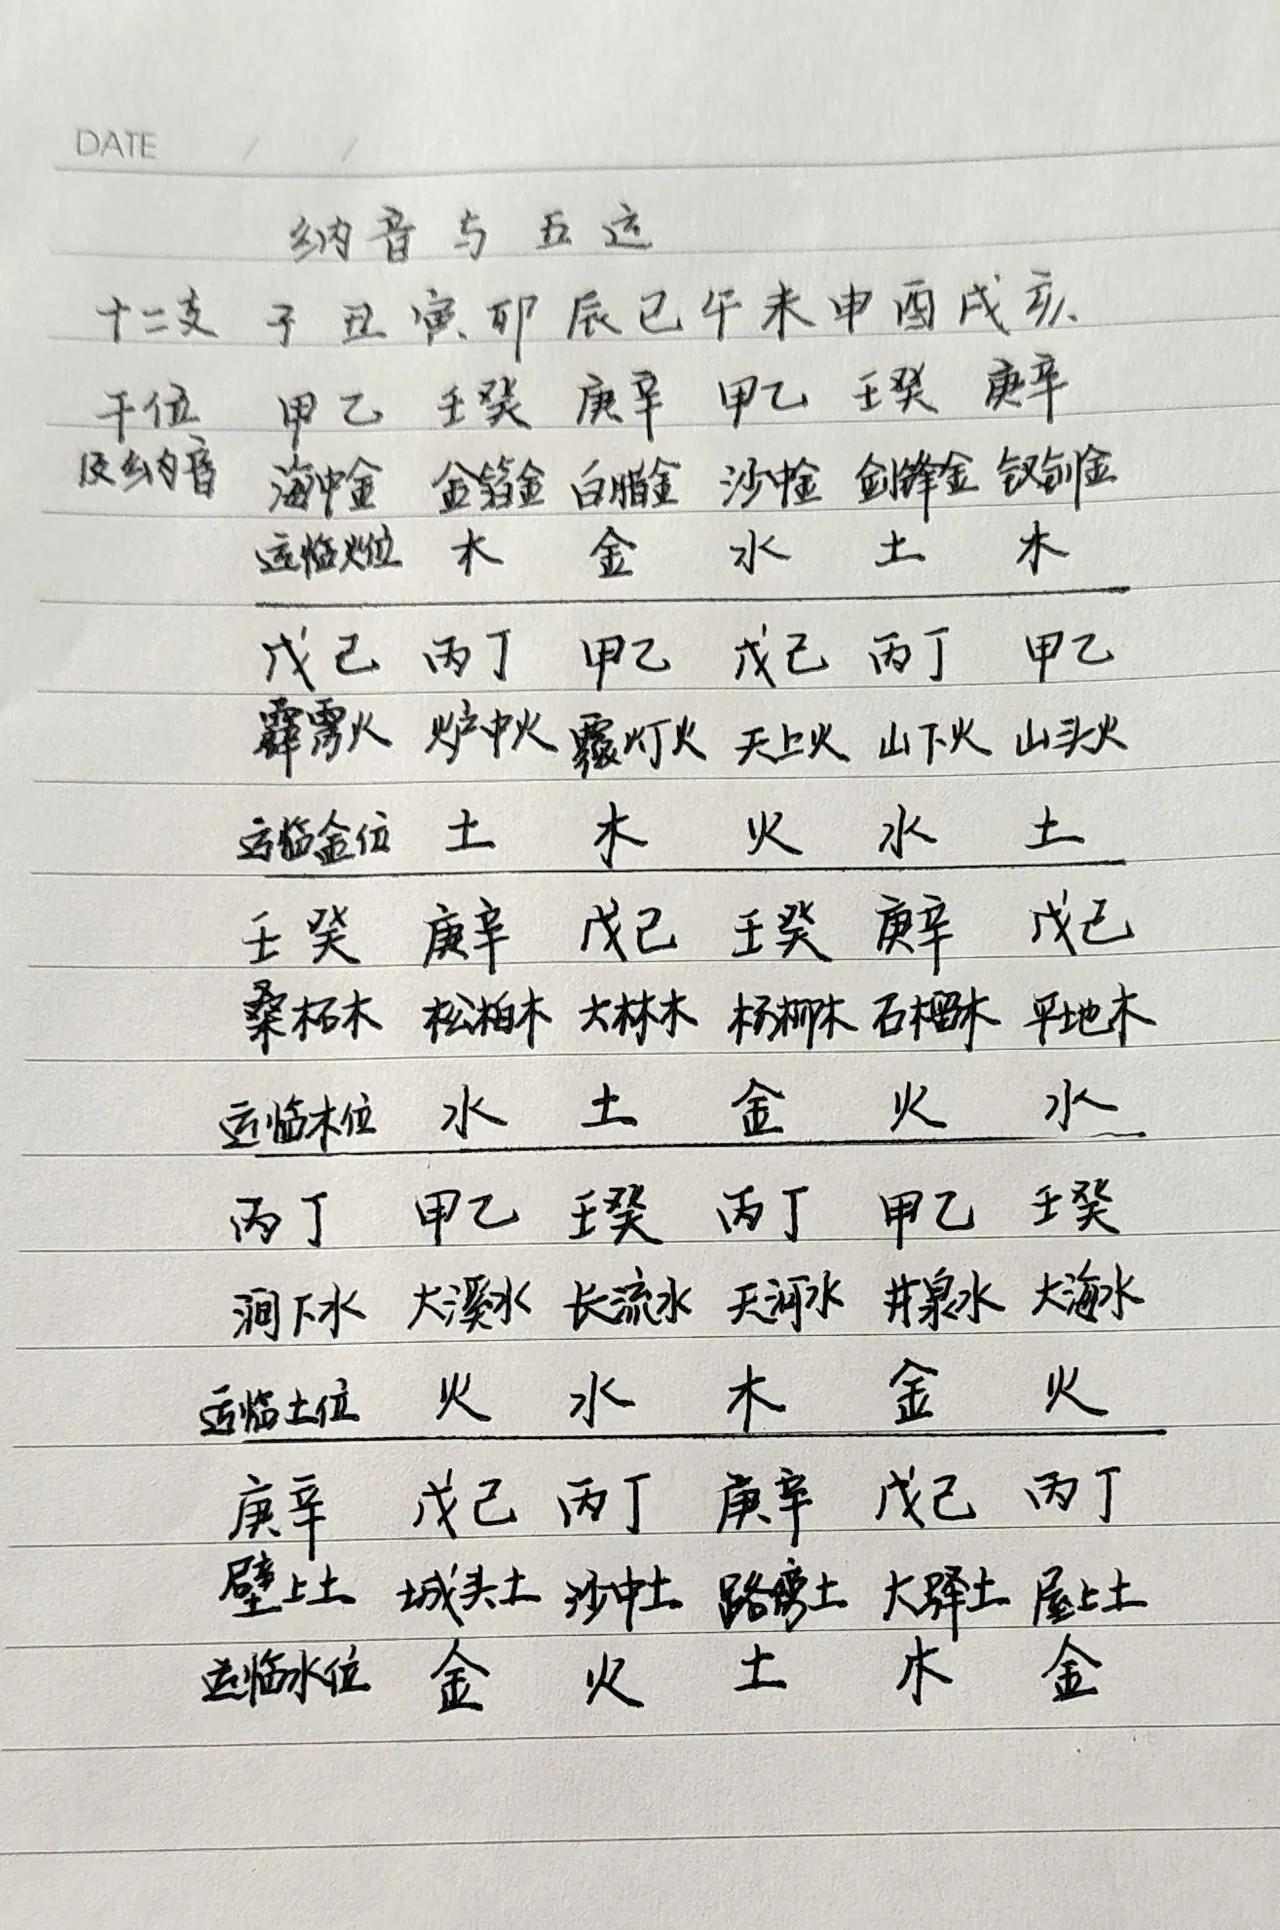 DATE / /
纳音与五运
十二支 子丑寅卯辰巳午未申酉戌亥
干位 甲乙 壬癸 庚辛 甲乙 壬癸 庚辛
及纳音 海中金 金箔金 白腊金 沙中金 剑锋金 钗钏金
运临火位 木 金 水 土 木
戊己 丙丁 甲乙 戊己 丙丁 甲乙
霹雳火 炉中火 覆灯火 天上火 山下火 山头火
运临金位 土 木 火 水 土
壬癸 庚辛 戊己 壬癸 庚辛 戊己
桑柘木 松柏木 大林木 杨柳木 石榴木 平地木
运临木位 水 土 金 火 水
丙丁 甲乙 壬癸 丙丁 甲乙 壬癸
涧下水 大溪水 长流水 天河水 井泉水 大海水
运临土位 火 水 木 金 火
庚辛 戊己 丙丁 庚辛 戊己 丙丁
壁上土 城头土 沙中土 路旁土 大驿土 屋上土
运临水位 金 火 土 木 金